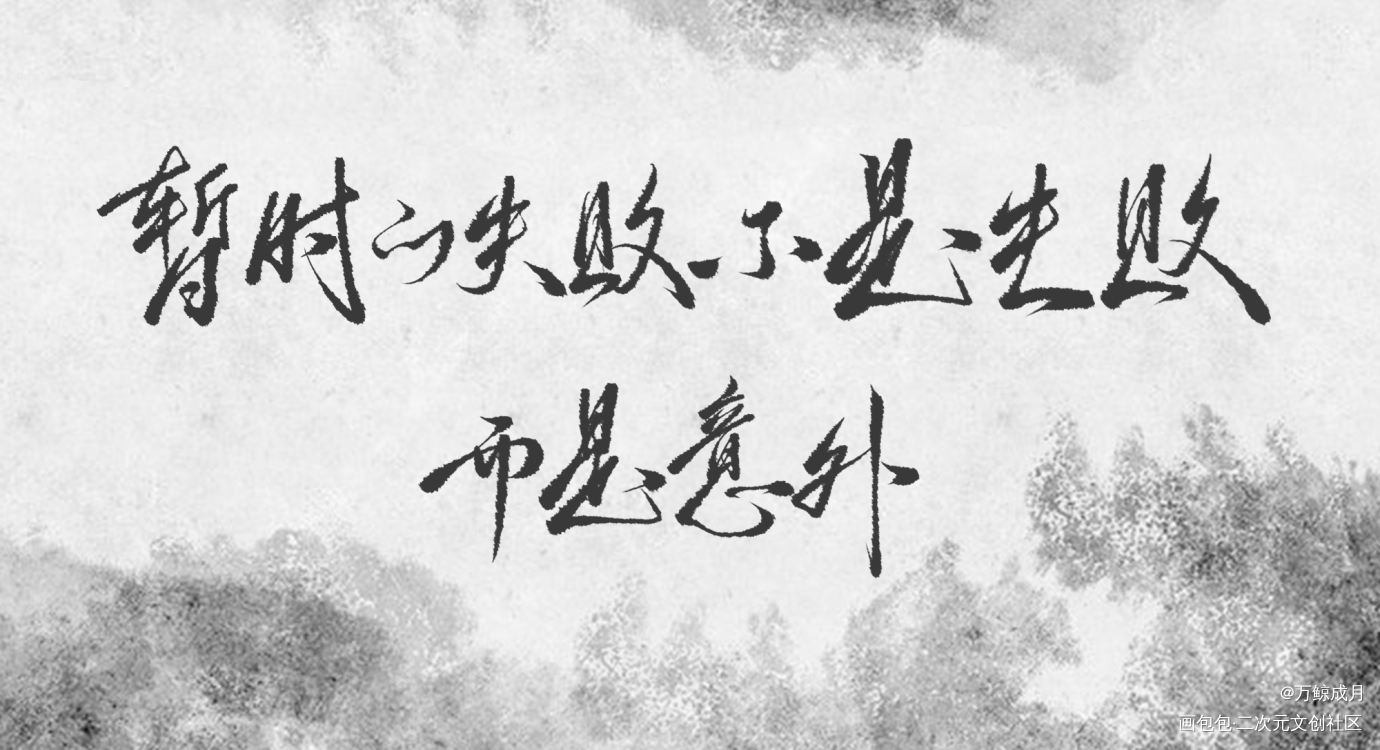 暂时的失败不是失败
而是意外
@万鲸成月
画包包·二次元文创社区